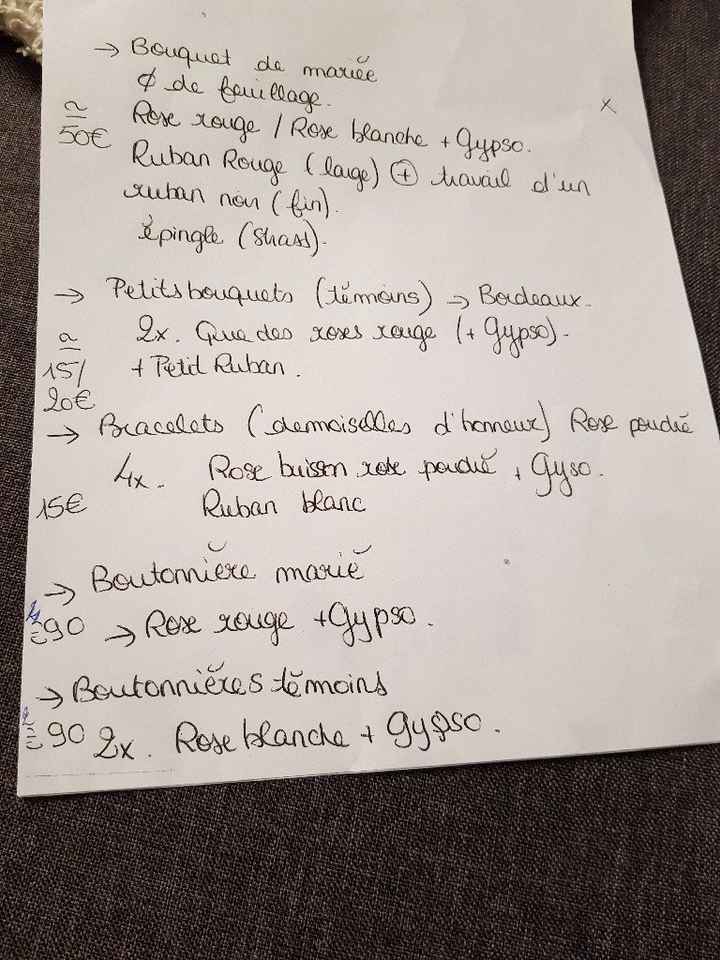 → Bouquet de mariée
∅ de feuillage.
≃ 50€ Rose rouge / Rose blanche + Gypso.
Ruban Rouge (large) ⊕ travail d'un
ruban noir (fin).
épingle (Strass).
→ Petits bouquets (témoins) → Bordeaux.
2x. Que des roses rouge (+ Gypso).
15/ + Petit Ruban.
20€
→ Bracelets (demoiselles d'honneur) Rose poudré
4x. Rose buisson rose poudré, Gyso.
15€ Ruban blanc
→ Boutonnière marié
90 → Rose rouge + Gypso.
→ Boutonnières témoins
90 2x. Rose blanche + Gypso.